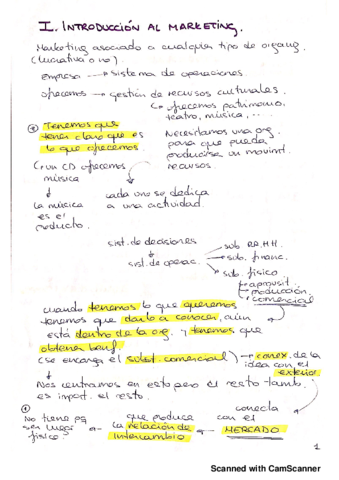 I. INTRODUCCIÓN AL MARKETING.
Marketing asociado a cualquier tipo de organiz.
(lucrativa o no).
empresa → sistema de operaciones
ofrecemos → gestión de recursos culturales.
↳ ofrecemos patrimonio,
teatro, música, ...
① Tenemos que
tener claro que es
lo que ofrecemos.
Necesitamos una org.
para que pueda
producirse un movimi.
recursos.
↳ un CD ofrecemos
música
↓
la música
es el
producto.
↓
cada uno se dedica
a una actividad.
sist. de decisiones
sist. de operac.
sub. RR.HH.
sub. financ.
sub. físico
→ aprovisi.
→ producción
→ comercial
cuando tenemos lo que queremos
tenemos que darlo a conocer, aún
está dentro de la org. y tenemos que
obtener benf
(se encarga el subst. comercial) → conex. de la
idea con el
exterior.
↓
Nos centramos en esto pero el resto tamb.
es import. el resto.
①
No tiene pq
ser lugar
físico
← que produce
la relación de
intercambio
conecta
con el
MERCADO
1
Scanned with CamScanner